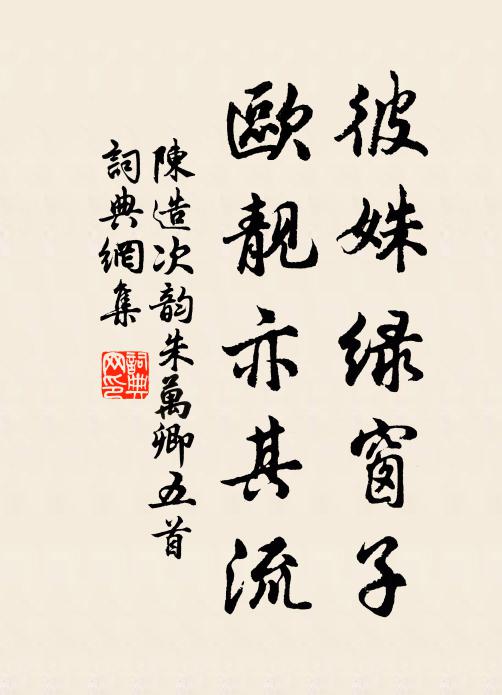 彼姝緑窗子
歐靚亦其流
陳造次韵朱萬卿五首
詞典網集
詞典
网印